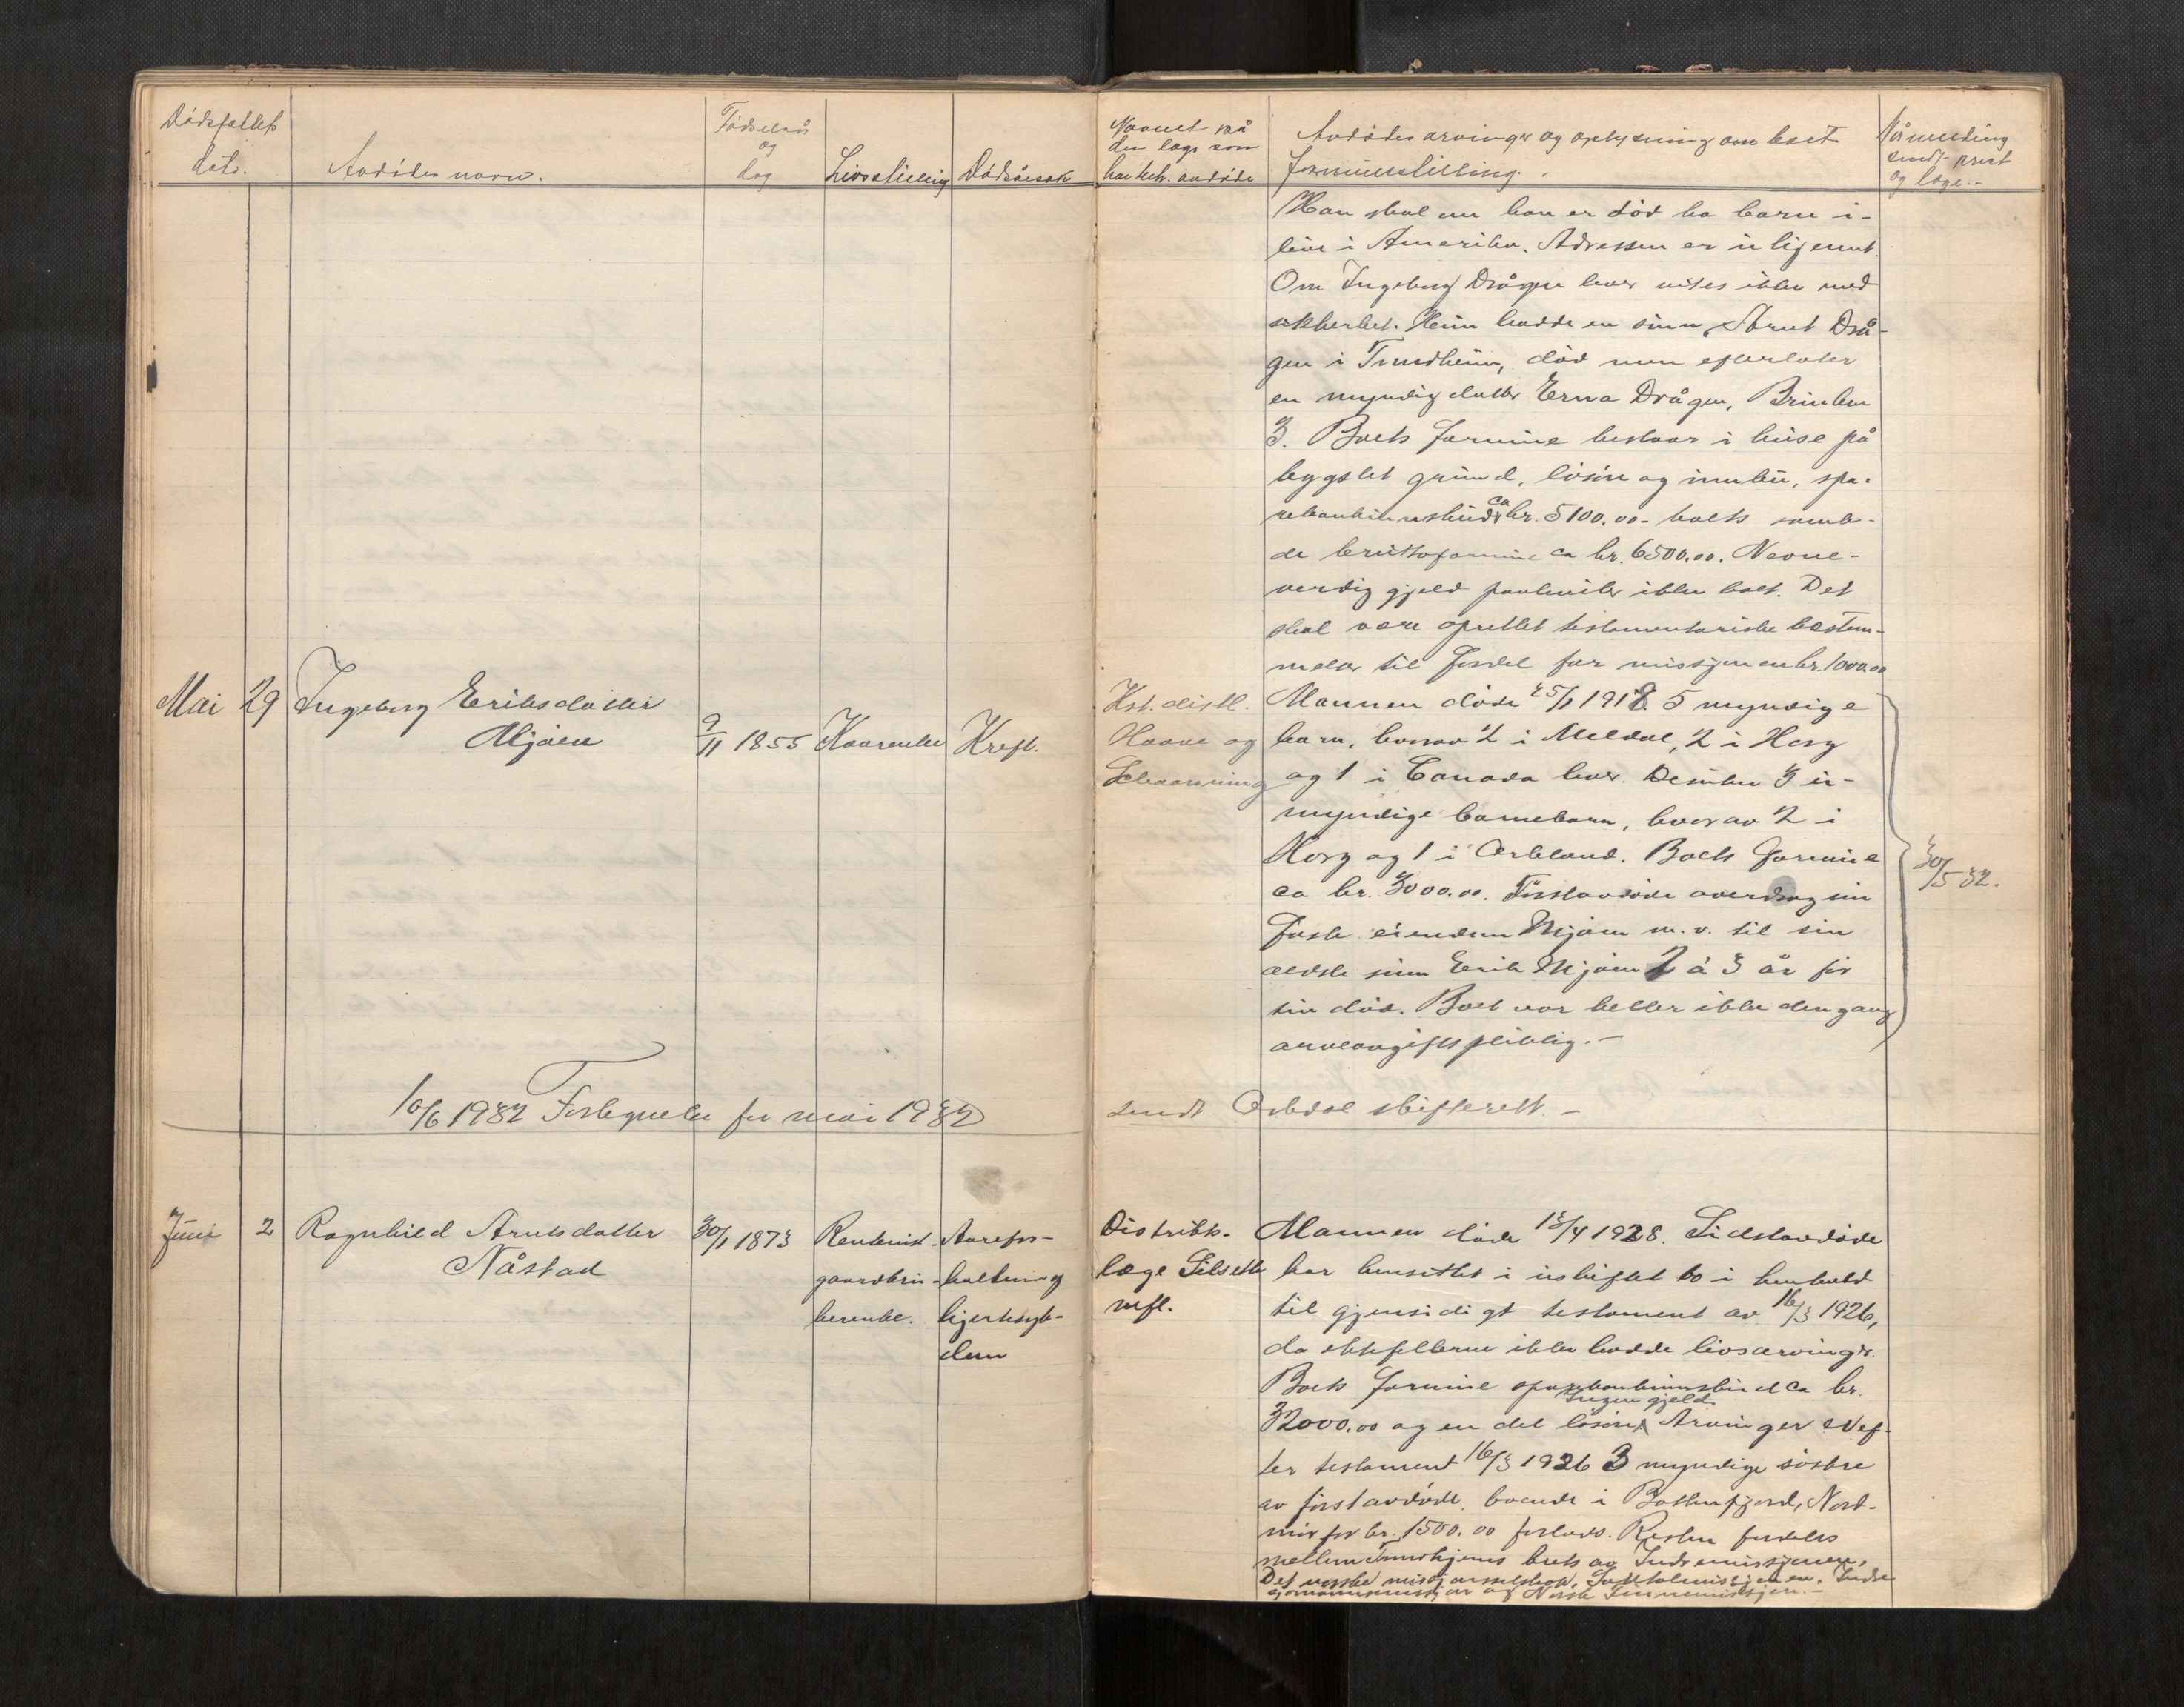 Dødsfallets
dato.
Avdødes navn.
Fødselsår
og
dag
Livsstilling
Dødsårsak
Navnet på
den læge som
har beh. avdøde
Avdødes arvinger og oplysning om boets
formuesstilling.
Anmelding
sendt prest
og læge.-
Han skal om han er død ha barn i-
live i Amerika. Adressen er ubekjennt.
Om Ingeborg Drågen lever vites ikke med
sikkerhet. Hun hadde en sønn, Arnt Drå-
gen i Trondheim, død men efterlater
en myndig datter Erna Drågen, Brinken
3. Boets formue bestaar i huse på
bygslet grund, løsøre og innbu, spa-
rebankinnskudd ca kr. 5100.00 - boets samle-
de bruttoformue ca kr. 6500.00. Nevne-
verdig gjeld paahviler ikke boet. Det
skal være oprettet testamentariske bestem-
melser til fordel for missjonen kr. 1000.00
Mai 29 Ingeborg Eriksdatter
Mjøen
9/11 1855 Kaarenke Kreft.
Kst. distl.
Haave og
Schaanning
Mannen døde 25/1 1918. 5 myndige
barn, hvorav 2 i Meldal, 2 i Horg
og 1 i Canada lever. Desuten 3 u-
myndige barnebarn, hvorav 2 i
Horg og 1 i Orkland. Boets formue
ca kr. 3000.00. Førstavdøde overdrog sin
faste eiendom Mjøen m.v. til sin
ældste sønn Erik Mjøen 2 à 3 år før
sin død. Boet var heller ikke dengang
arveavgiftspliktig.-
30/5 32.
10/6 1932 Fortegnelse for mai 1932 sendt Orkdal skifterett.-
Juni 2 Ragnhild Arntsdatter
Nåstad
30/1 1873
Rentenist-
gaardbru-
kerenke.
Aarefor-
kalkning
hjertesyk-
dom
Distrikts-
læge Schseth
mfl.
Mannen døde 13/4 1928. Sidstavdøde
har hensittet i uskiftet bo i henhold
til gjensidigt testament av 16/3 1926,
da ektefellerne ikke hadde livsarvinger.
Boets formue sparebankinnskud ca kr.
32000.00 og en del løsøre, Ingen gjeld. Arvinger ef-
ter testament 16/3 1926 3 myndige søstre
av førstavdøde, boende i Battenfjord, Nord-
mør for kr. 1500.00 forlods. Resten fordeles
mellem Trondhjems krets av Indremissjonen,
Det norske misjonsselskap, Santalmissjonen, Indre
sjømannsmissjon og Norsk